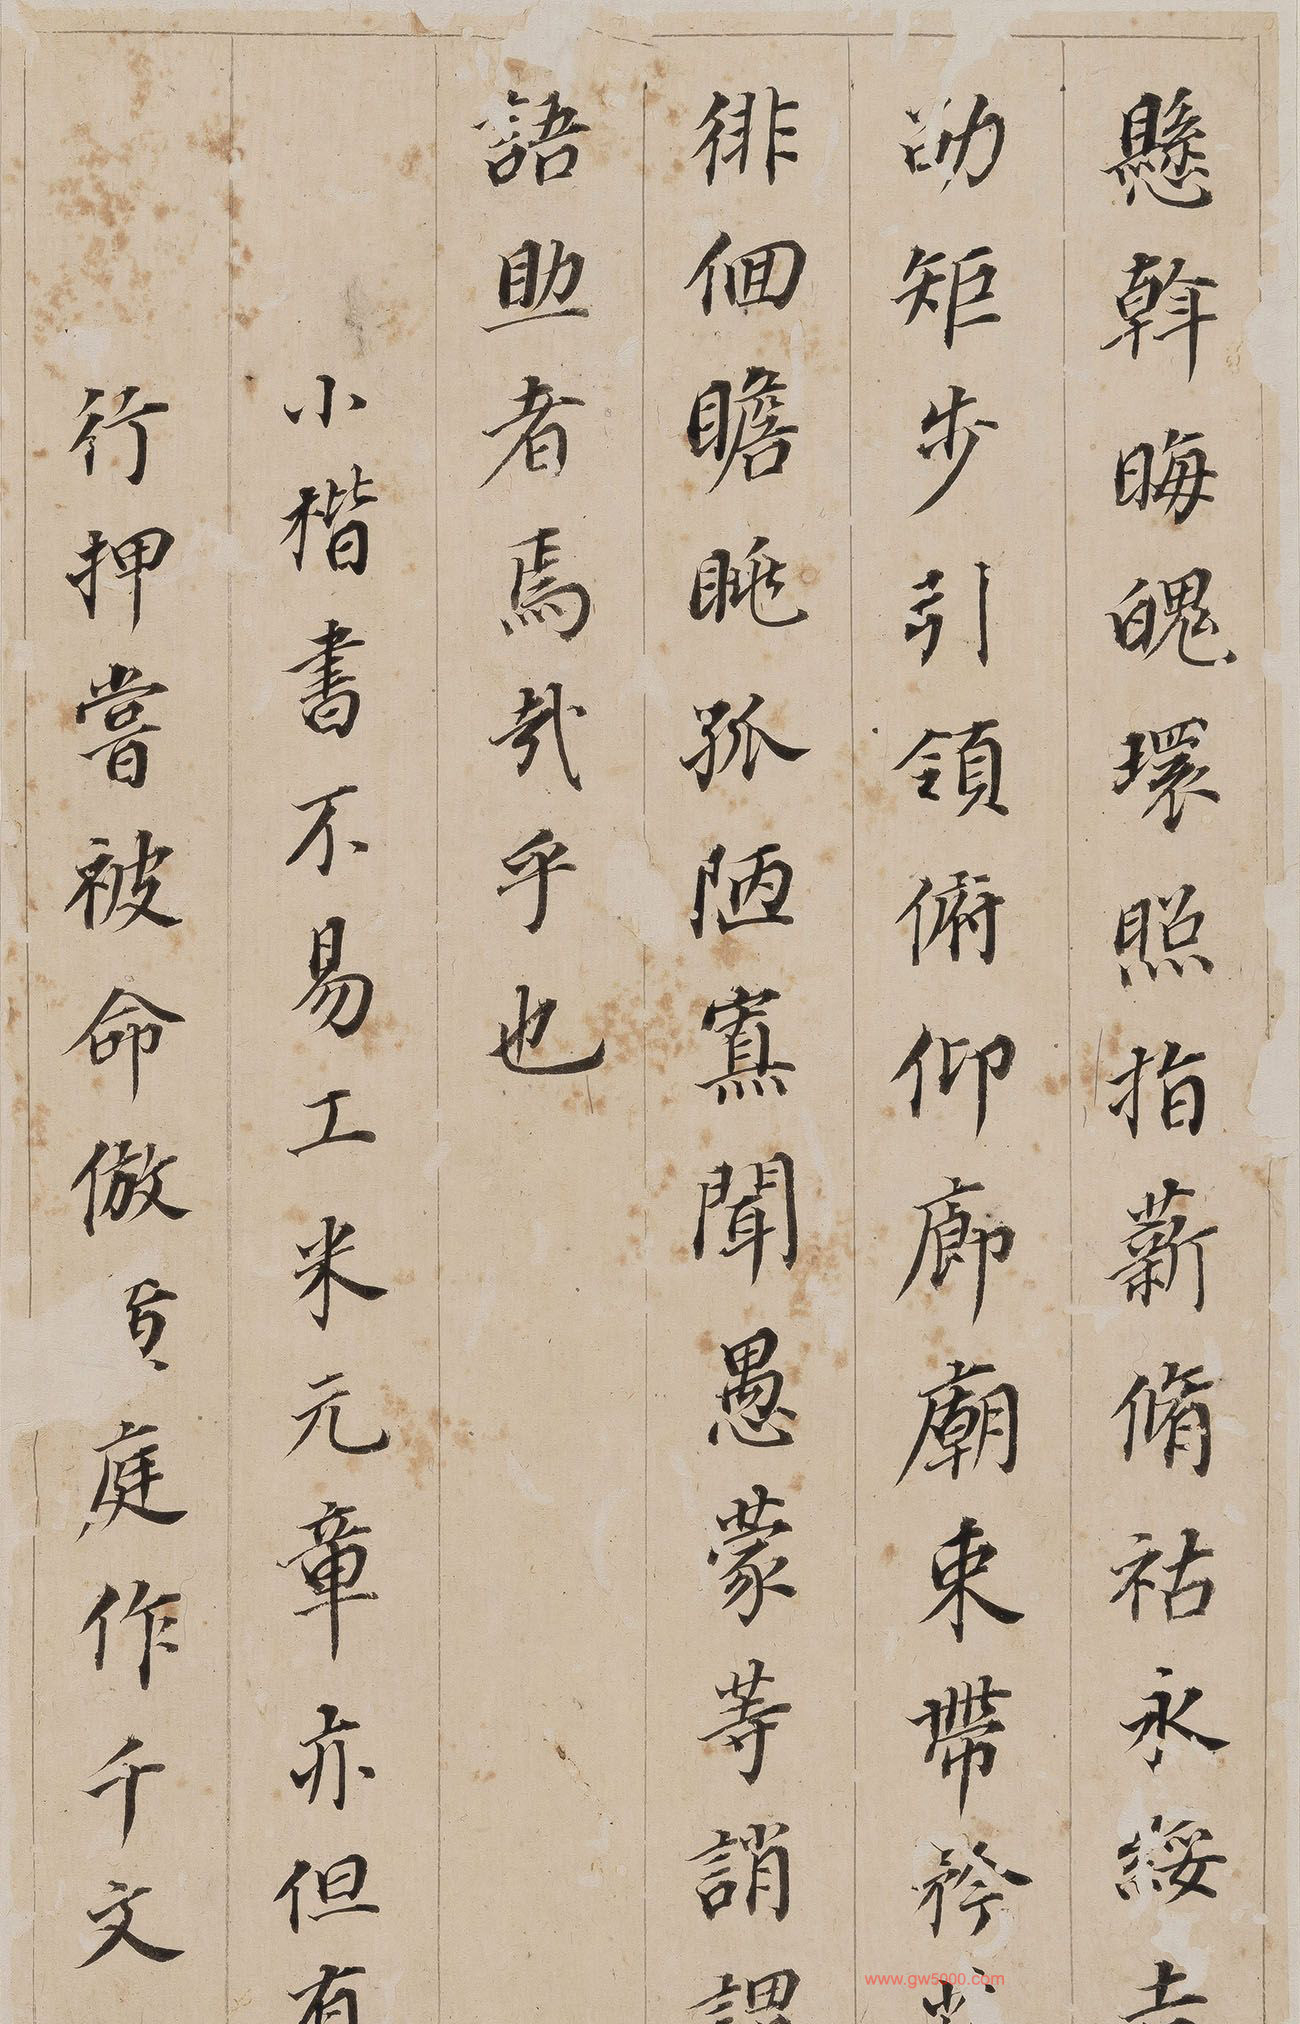 懸斡晦魄環照指薪脩祜永綏吉
劭矩步引領俯仰廊廟束帶矜莊
徘徊瞻眺孤陋寡聞愚蒙等誚謂
語助者焉哉乎也
小楷書不易工米元章亦但有
行押嘗被命倣黃庭作千文
www.gw5000.com